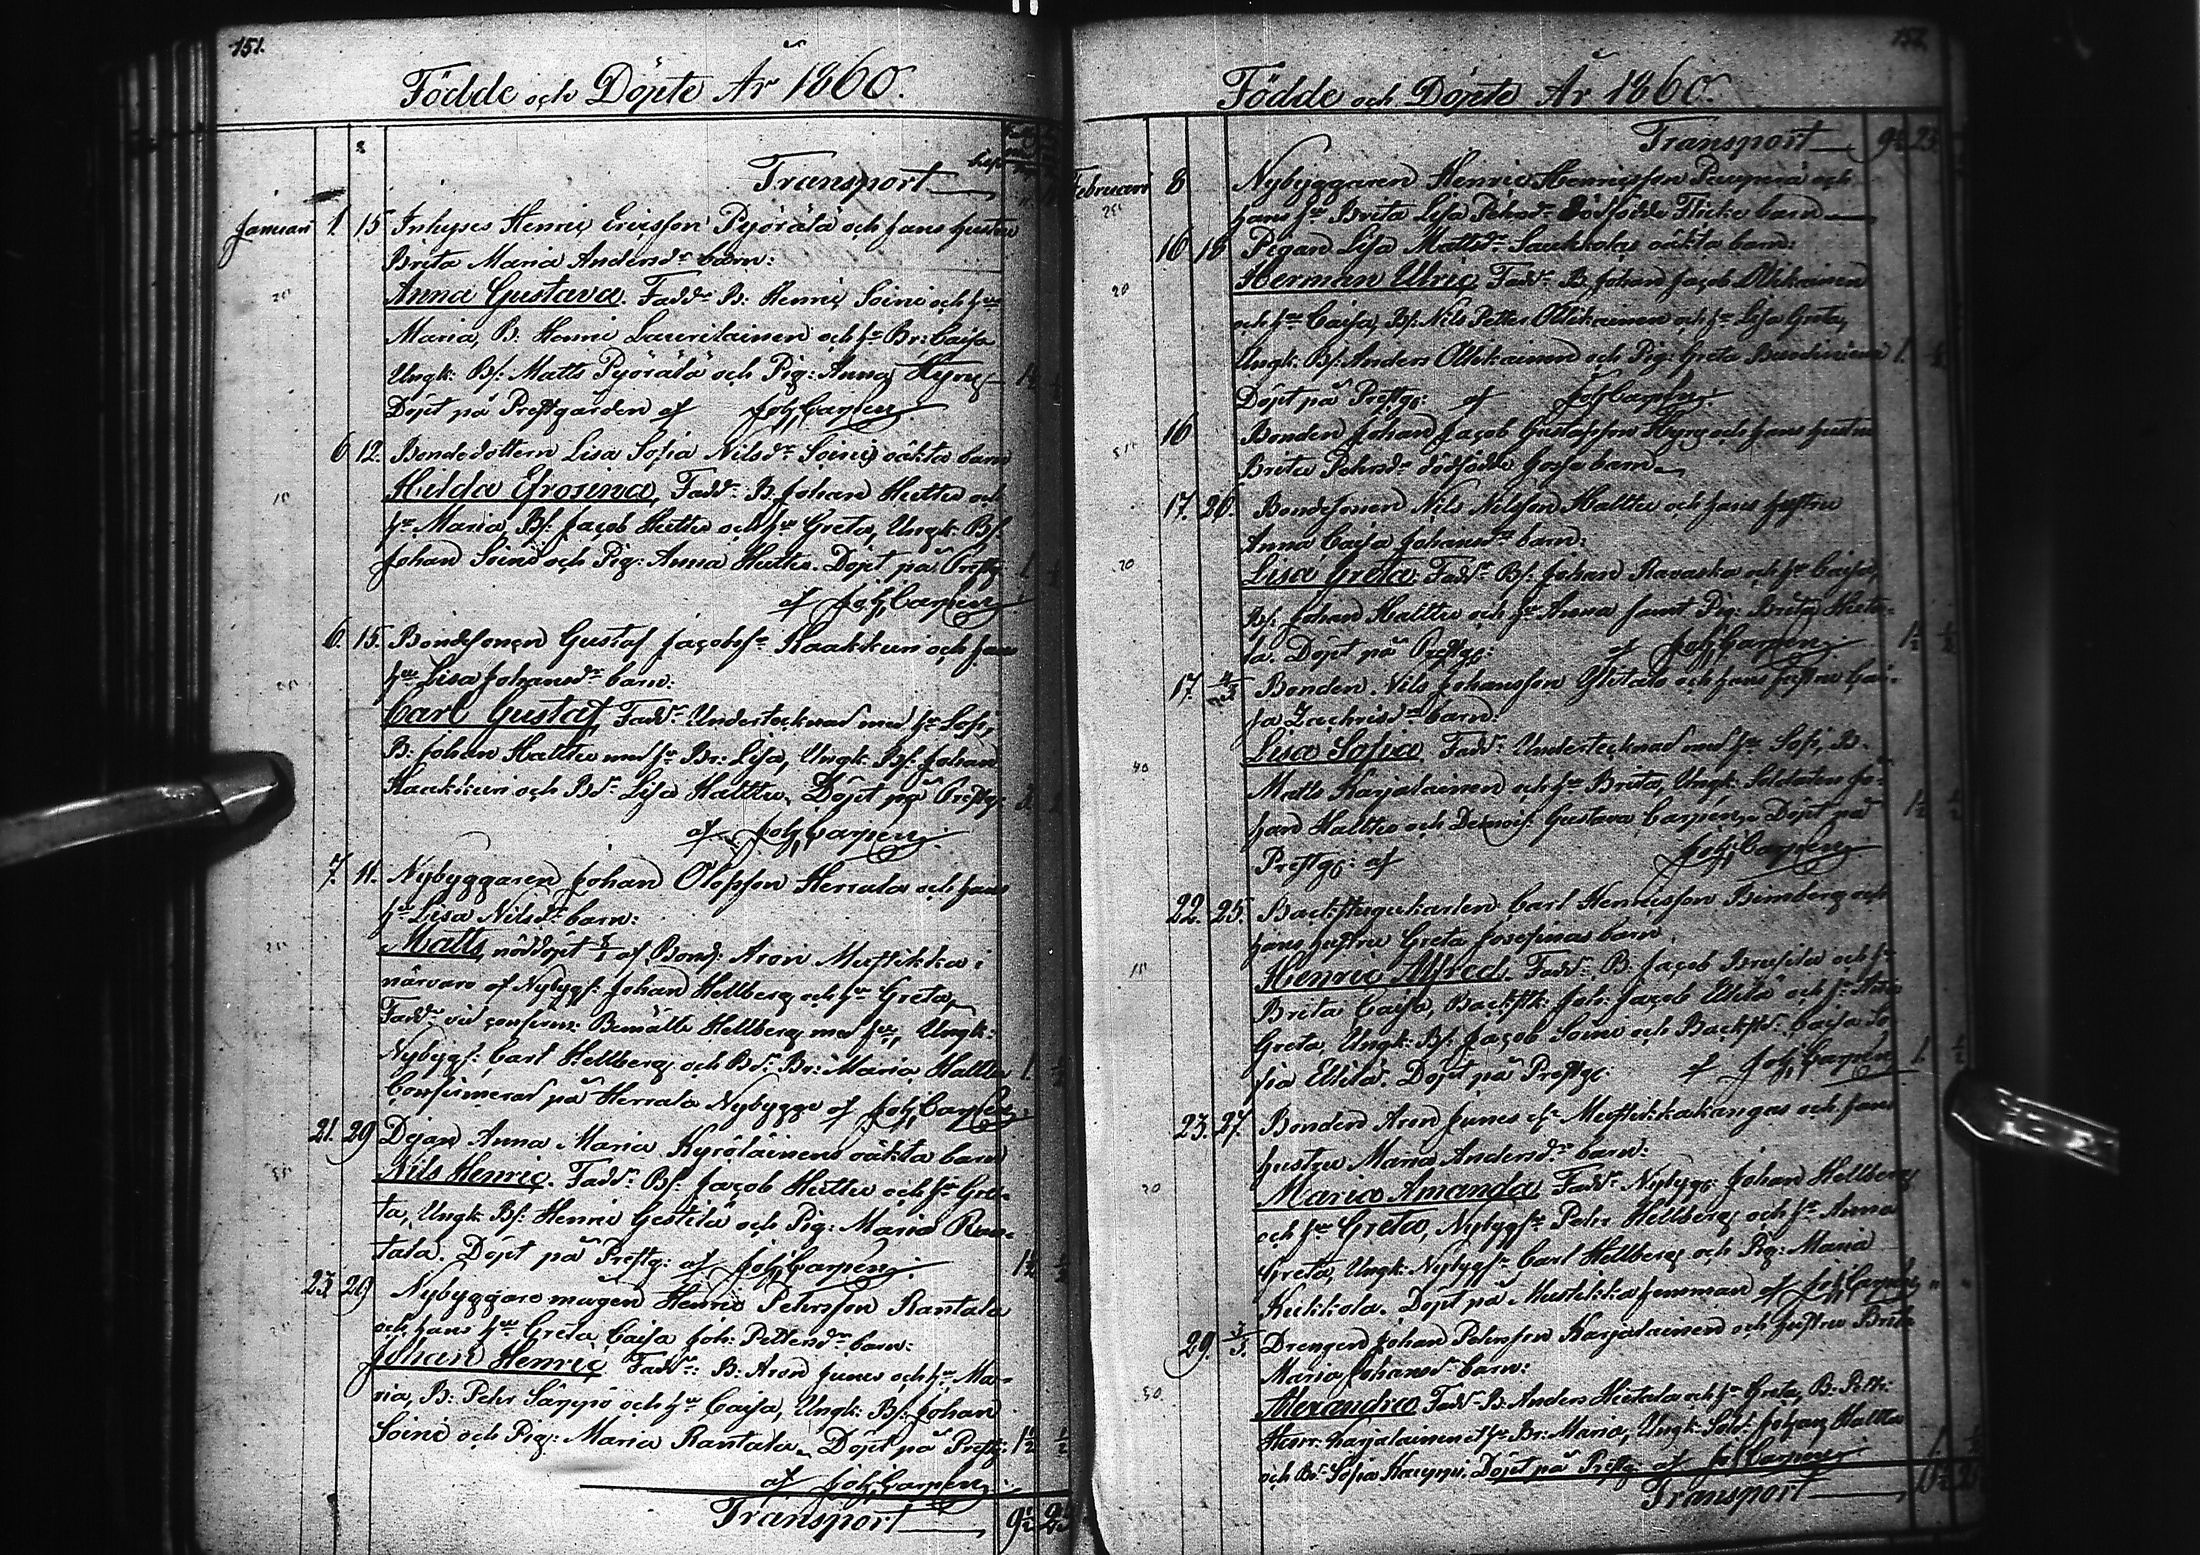 151.
Födde och Döpte År 1860.
Transport
Januari 1 15 Inhyses Henric Ericsson Pyörälä och hans hustru
Brita Maria Andersdr barn:
20 Anna Gustava. Faddr B: Henric Soini och hu
Maria, B: Henric Lauritainen och hu Br: Caisa
Ungk: Bs: Matts Pyörälä och Pig: Anna Kyng
Döpt på Prestgården af Joh, Carpen
6 12. Bondedottern Lisa Sofia Nilsdr Soinis oäkta barn
10 Hilda Efrosina, Faddr B. Johan Huttu och
hu Maria, Bs: Jacob Huttu och hu Greta, Ungk. Bs:
Johan Soini och Pig: Anna Huttu. Döpt på Prestg: 1 ½
af Joh, Carpen
6. 15. Bondesonen Gustaf Jacobsn Kaakkuri och hans
hu Lisa Johansdr barn:
Carl Gustaf, Faddr Undertecknad med hu Sofi,
B: Johan Halttu med hu Br: Lisa, Ungk. Bs: Johan
Kaakkuri och Bdr Lisa Halttu. Döpt på Prestg:
af Joh, Carpen
7. 11. Nybyggaren Johan Olofsson Herrala och hans
hu Lisa Nilsdr barn:
Matts, nöddöpt 8/1 af Bond: Aron Mustikka i
närvaro af Nybygs: Johan Hellberg och hu Greta,
Faddr vid confirm: Bemälte Hellberg med hu, Ungk:
Nybygs: Carl Hellberg och Bdr Br: Maria Halttu 1 ½
Confirmerad på Herrala Nybygge af Joh, Carpen
21. 29 Pigan Anna Maria Kyröläinens oäkta barn
Nils Henric. Faddr Bs: Jacob Huttu och hu Gre-
ta, Ungk. Bs: Henric Gestilä och Pig: Maria Ran-
tala. Döpt på Prestg: af Joh, Carpen 1½ ½
23 29 Nybyggare mågen Henric Pehrsson Rantala
och hans hu Greta Caisa Joh: Pettersdr barn:
Johan Henric Faddr: B: Aron Junes och hu Ma-
ria, B: Pehr Säppä och hu Caisa, Ungk: Bs: Johan
Soini och Pig: Maria Rantala. Döpt på Prestg: 1½ ½
af Joh, Carpen
Transport 9½
152.
Födde och Döpte År 1860.
Transport 9½ 23
Februari 8 Nybyggaren Henric Henricsson och
hans hu Brita Lisa Pehrsdr Dödfödde Flicke barn
16 18 Pigan Lisa Mattsdr Laukkolas oäkta barn:
20 Herman Ulric, Faddr B. Johan Jacob Ollikainen
och hu Caisa, Bs: Nils Petter Ollikainen och hu Lisa Greta,
Ungk: Bs: Anders Ollikainen och Pig: Greta 1. ½
Döpt på Prestg: af Joh, Carpen
16 Bonden Johan Jacob Gustafsson Kyng och hans hustru
Brita Pehrsdr dödfödde Gosse barn
17. 26. Bondesonen Nils Nilsson Halttu och hans hustru
Anna Caisa Johansdr barn:
20 Lisa Greta: Faddr Bs: Johan Ravaska och hu Caisa,
Bs: Johan Halttu och hu Anna samt Pig: Brita Hieta-
la. Döpt på Prestg: af Joh, Carpen 1½ ½
17. 4/3 Bonden Nils Johansson Ylitalo och hans hustru Cai-
sa Zachrisdr barn:
40 Lisa Sofia. Faddr Undertecknad med hu Sofi, B.
Matts Karjalainen och hu Brita, Ungk: Soldaten Jo-
han Halttu och Demois: Gustava Carpen. Döpt på 1½ ½
Prestg: af Joh, Carpen
22. 25. Backstugukarlen Carl Henricsson Bimberg och
hans hustru Greta Josefinas barn
Henric Alfred. Faddr B. Jacob Brusila och hu
Brita Caisa, Backstk: Joh: Jacob Ellilä och hu
Greta, Ungk: Bs: Jacob Soini och Backstd: Caisa So-
fia Ellilä. Döpt på Prestg: af Joh, Carpen 1. ½
23. 27. Bonden Aron Junes el: Mustikkakangas och hans
hustru Maria Andersdr barn:
20 Maria Amanda, Faddr Nybyg: Johan Hellberg
och hu Greta, Nybygsn Pehr Hellberg och hu Anna
Greta, Ungk: Nybygsn Carl Hellberg och Pig: Maria
Kukkola. Döpt på Mustikka hemman af Joh, Carpen
29. 3/3. Drengen Johan Pehrsson Karjalainen och hustru Brita
Maria Johansdr barn:
30 Alexandra Faddr B: Anders Hietala och hu Greta, B: Pett:
Henr: Karjalainen et hu Br: Maria, Ungk: Sold: Johan Halttu
och Bdr Sofia Kauppi. Döpt på Prestg: af Joh, Carpen 1.
Transport